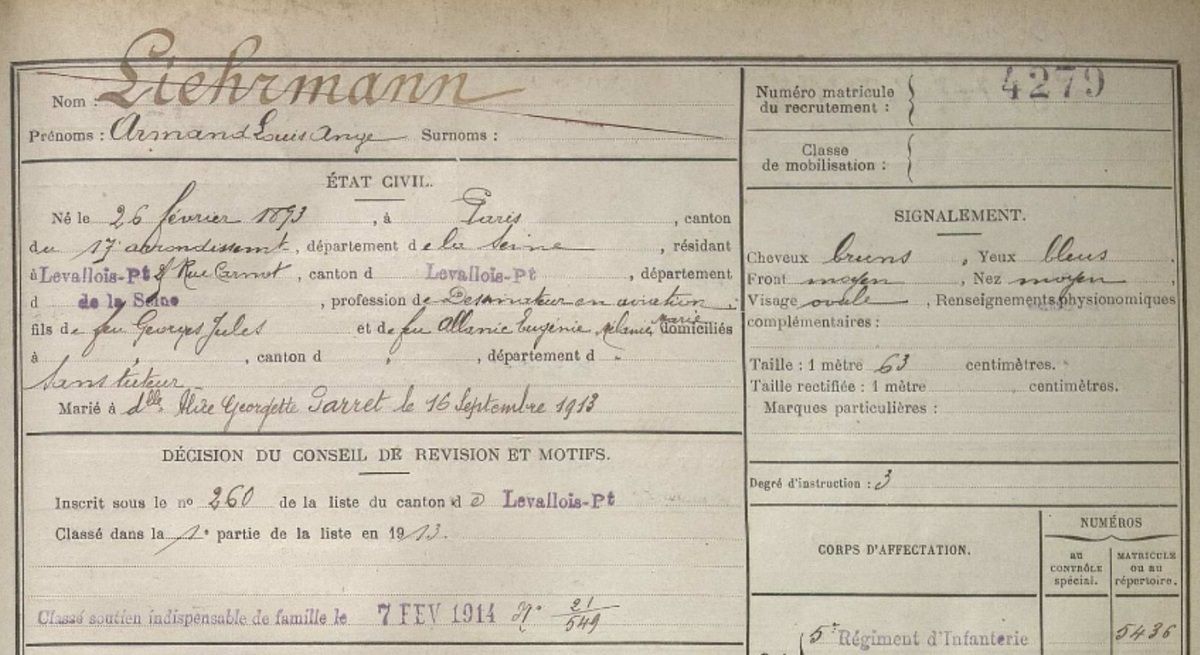 Nom : Liehrmann
Prénoms : Armand Louis Ange Surnoms :
ÉTAT CIVIL.
Né le 26 février 1893, à Paris, canton
du 17e arrondissemt, département de la Seine, résidant
à Levallois-Pt 8 Rue Carnot, canton d Levallois-Pt, département
d de la Seine, profession de Dessinateur en aviation,
fils de feu Georges Jules et de feu Allanic Eugénie Mélanie Marie domiciliés
à , canton d , département d
Sans tuteur
Marié à dlle Alice Georgette Garret le 16 Septembre 1913
DÉCISION DU CONSEIL DE REVISION ET MOTIFS.
Inscrit sous le no 260 de la liste du canton d e Levallois-Pt
Classé dans la 1e partie de la liste en 1913.
Classé soutien indispensable de famille le 7 FEV 1914 No 21/549
Numéro matricule du recrutement : 4279
Classe de mobilisation :
SIGNALEMENT.
Cheveux bruns, Yeux bleus,
Front moyen, Nez moyen
Visage ovale, Renseignements physionomiques
complémentaires :
Taille : 1 mètre 63 centimètres.
Taille rectifiée : 1 mètre centimètres.
Marques particulières :
Degré d'instruction : 3
CORPS D'AFFECTATION.
NUMÉROS
au CONTRÔLE spécial.
MATRICULE ou au répertoire.
5e Régiment d'Infanterie 5436